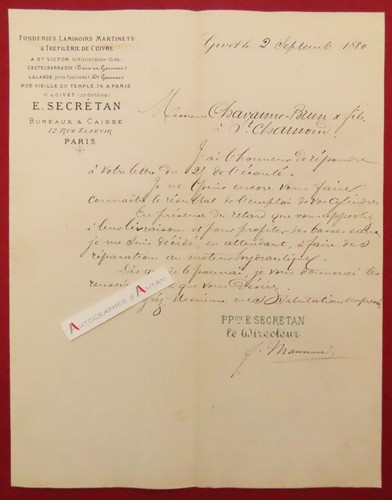 FONDERIES LAMINOIRS MARTINETS
& TRÉFILERIE DE CUIVRE
A ST VICTOR
CASTELSARRASIN
LALANDE
RUE VIEILLE DU TEMPLE 75 A PARIS
et A GIVET (ARDENNES)
E. SECRÉTAN
BUREAUX & CAISSE
12 RUE ELZEVIR
PARIS
Givet le 2 Septembre 1880
Messieurs Chavanne-Brun & fils
à St Chamond
J'ai l'honneur de répondre
à votre lettre du 25 de l'écoulé.
Je ne puis encore vous faire
connaître le résultat de l'emploi de vos cylindres
En présence du retard que vous apportez
à leur livraison et pour profiter des basses eaux,
je me suis décidé, en attendant, à faire des
réparations au moteur hydraulique.
Dès que je le pourrai, je vous donnerai les
que vous désirez.
Salutations
PPon E. SECRÉTAN
le Directeur
AUTOGRAPHES D'ANTAN